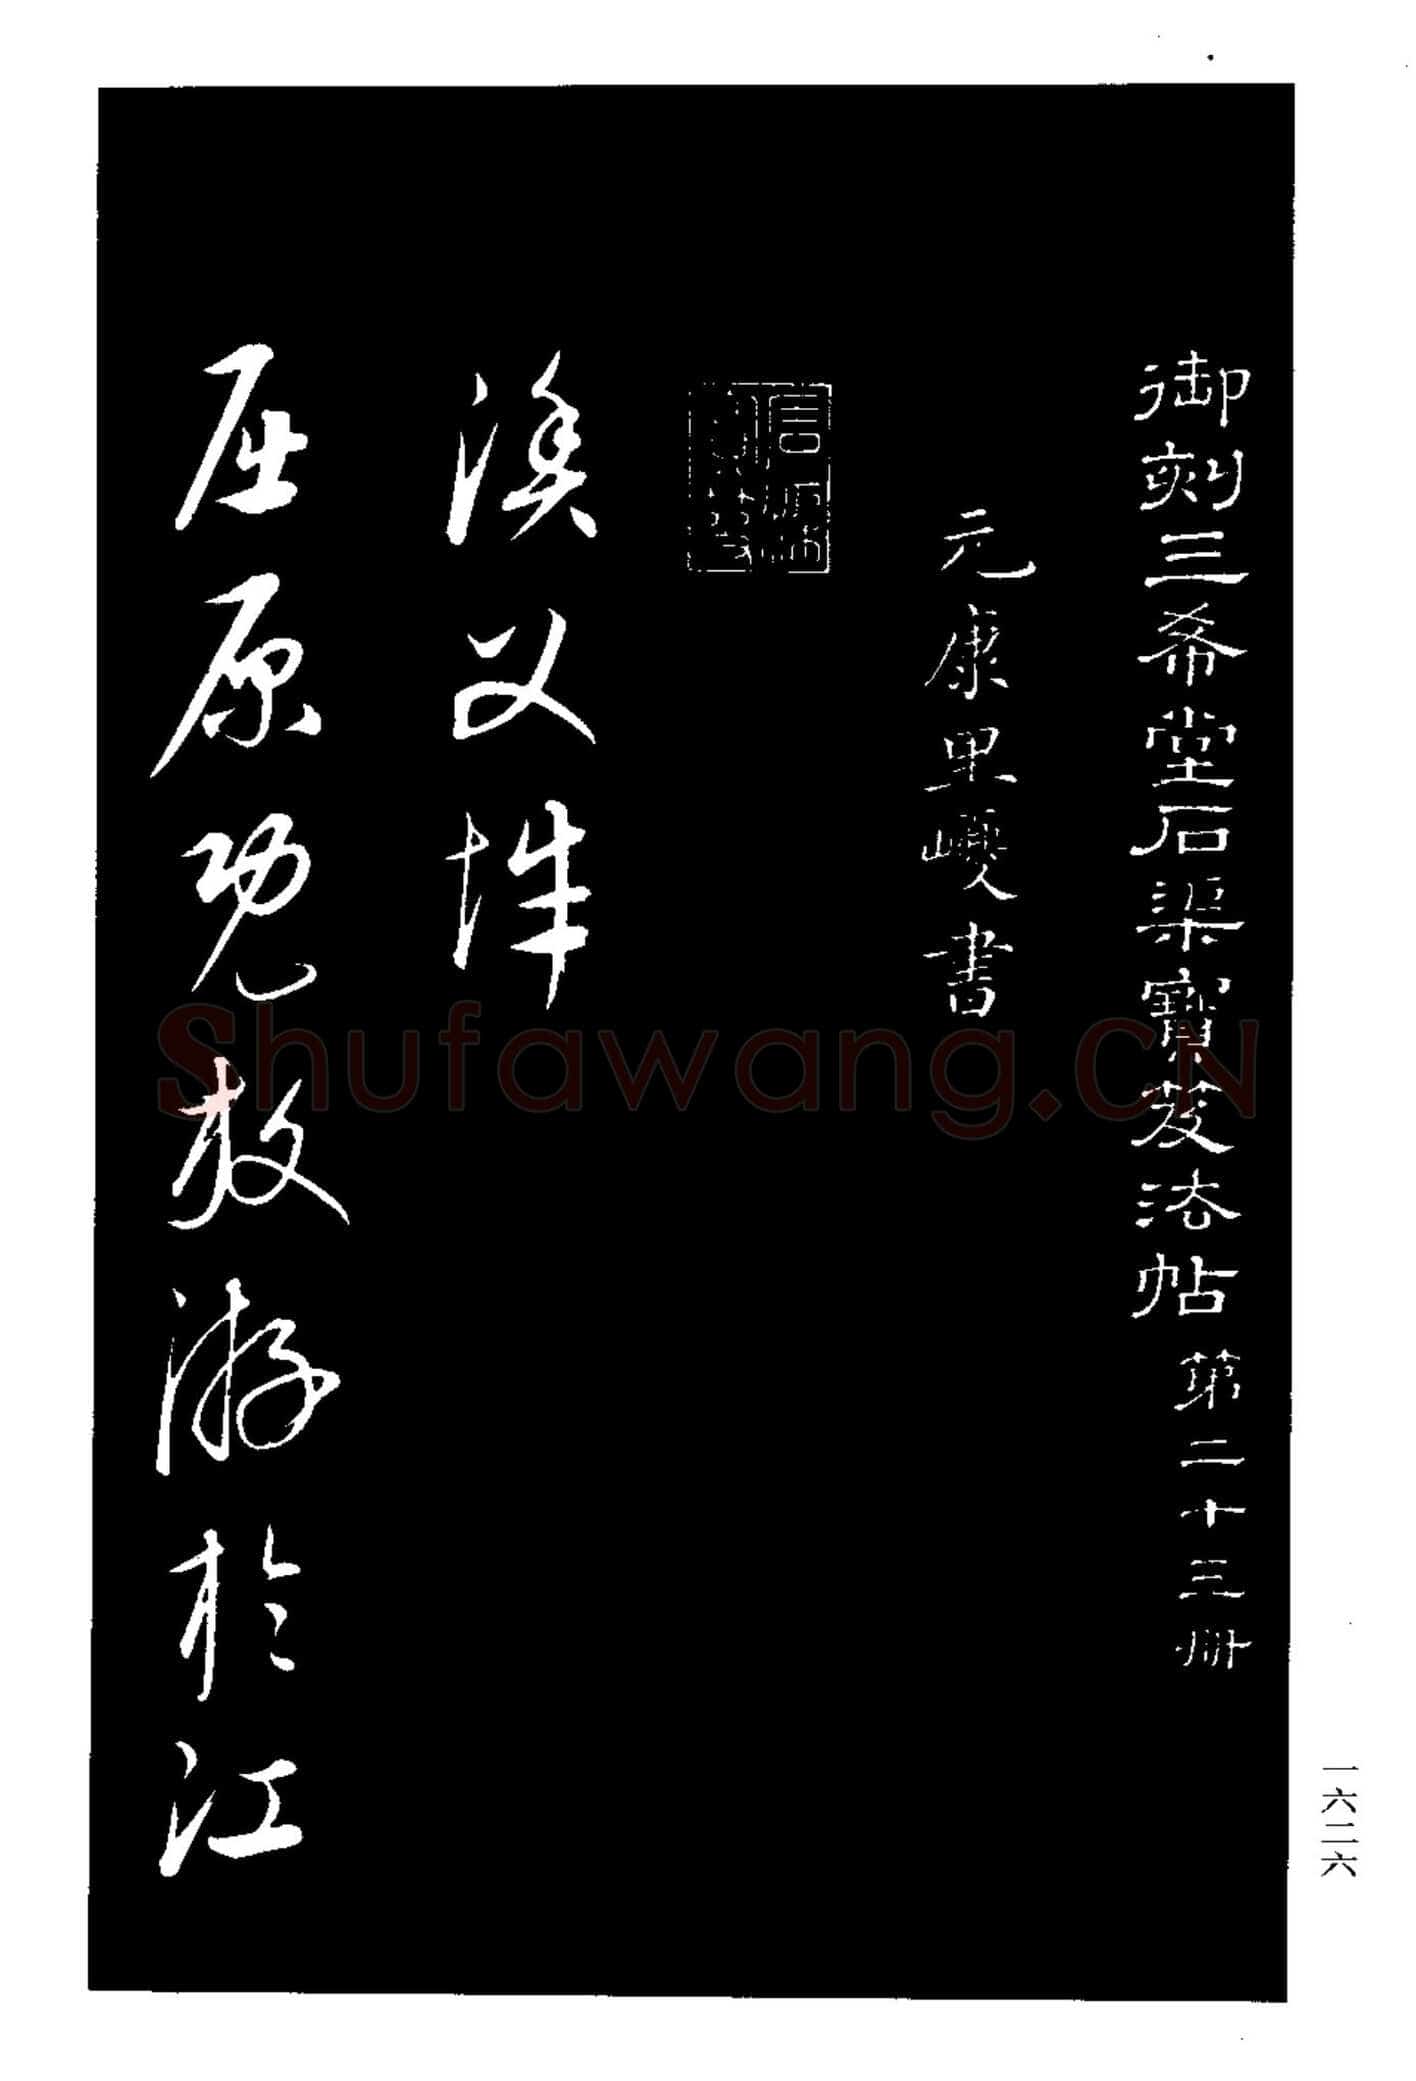 御刻三希堂石渠寶笈法帖 第二十三冊
元康里巎書
漁父辭
屈原既放游於江
一六二六
Shufawang.CN